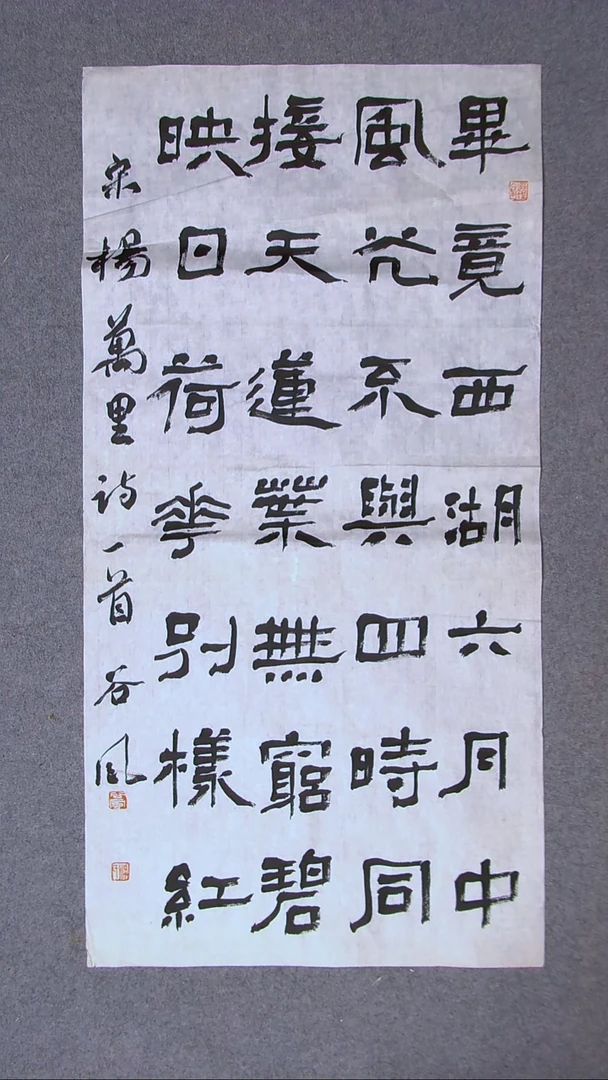 畢竟西湖六月中
風光不與四時同
接天蓮葉無窮碧
映日荷花別樣紅
宋楊萬里詩一首谷風